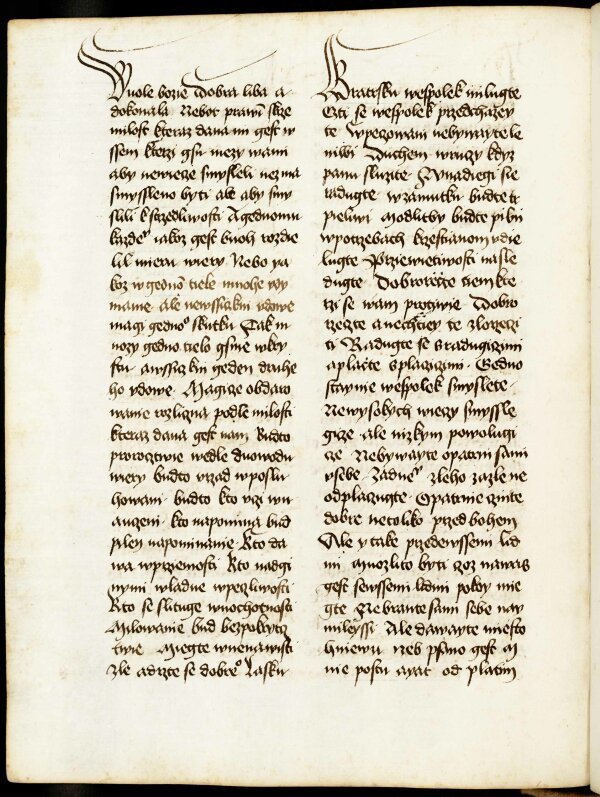 Wuole bozie Dobra liba a
dokonala Nebot prawim skrze
milost kteraz dana mi gest w
ssem kterzi gsu mezy wami
aby newieze smysleli nez ma
smyssleno byti ale aby smy
slili k strzedliwosti A gednomu
kazdeo iakoz gest buoh rozdie
lil mieru wiery Nebo ya
koz w gednom tiele mnohe vdy
mame ale newssickni vdowe
magi gednoo skutku Tak m
nozy gedno tielo gsme w kry
stu awssickni geden druhe
ho vdowe Magice obdaro
wanie rozlicna podle milosti
kteraz dana gest nam Budto
proroctwie wedle duowodu
wiery budto vrzad w poslu
howani budto kto vczi w v
czeni kto napomina bud
pilen napominanie Kto da
wa w przemosti Kto nadgi
nymi wladne w peczliwosti
Kto se slituge w ochotnosti
Milowanie bud bez pokryte
twie Miegte w nenawisti
zle a drzte se dobreo Lasku
Bratrsku wespolek milugte
Czti se wespolek predchazey
te W peczowani nebywayte le
niwi Duchem wruczy kdyz
panu sluzite Zynadiegi sie
radugte w zamutku budte tr
pieliwi Modlitby budte pilni
w potrzebach krzestianom vdie
lugte Prziewiwetiwosti nasle
dugte Dobrorzecte tiem kte
rzi se wam protiwie Dobro
rzeczte a nechtiey te zlorzeczi
ti Radugte se s radugiczimi
a placte s placziczimi Gedno
staynie wespolek smyslete
Ne wysokych wieczy smyssle
gicze ale nizkym powolugi
cze Nebywayte opatrni sami
v sebe Zadneo zleho za zle ne
odplaczugte Opatrnie czinte
dobre netoliko przed bohem
Ale y take przede wssemi lid
mi Muozli to byti coz na was
gest se wssemi lidmi pokoy mie
gte Ne brante sami sebe nay
mileyssi Ale dawayte miesto
hniewu neb psano gest M
nie pomstu a yat od platim